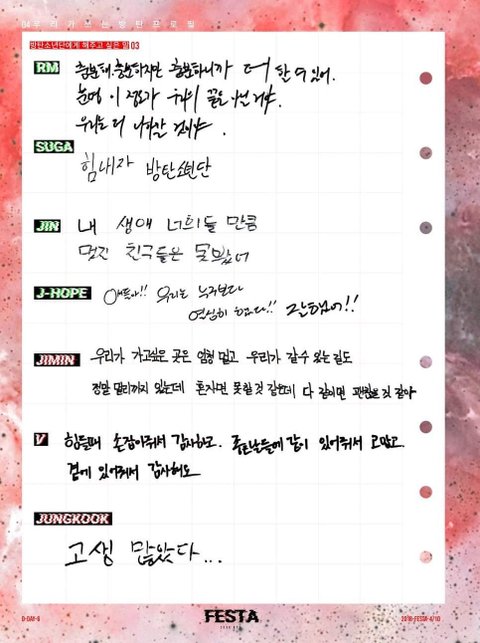 04 우리가 쓰는 방탄프로필
방탄소년단에게 해주고 싶은 말 03
RM
충분해. 충분하지만 충분하니까 더 할 수 있어.
눈명 이 정도가 우리의 끝은 아닌 거야.
우리는 더 나아갈 것이야.
SUGA
힘내자 방탄소년단
JIN
내 생애 너희들 만큼
멋진 친구들은 못봤어
J-HOPE
얘들아!! 우리는 누구보다
열심히 했다!! 잘했어!!
JIMIN
우리가 가고싶은 곳은 엄청 멀고 우리가 갈 수 있는 길도
정말 멀리까지 있는데 혼자면 못할 것 같은데 다 같이면 괜찮을 것 같아
V
힘들때 손잡아줘서 감사하고. 좋은날들에 같이 있어줘서 고맙고.
곁에 있어줘서 감사해요
JUNGKOOK
고생 많았다...
D-DAY-9
FESTA
2018-FESTA-4/10